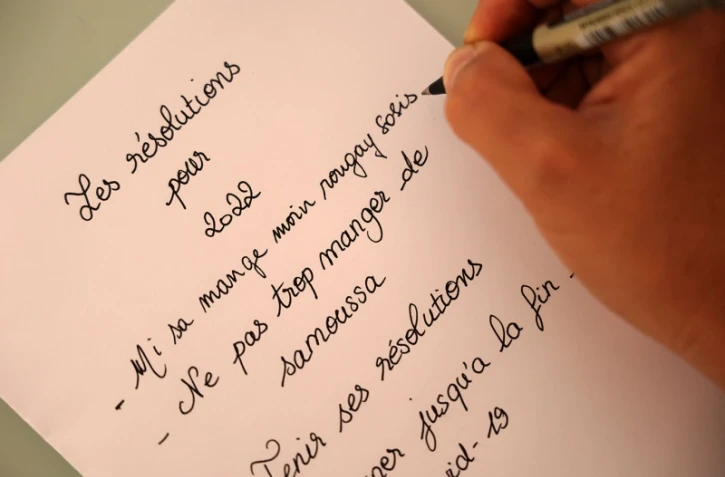 Les résolutions
pour
2022
- Mi sa mange moin rougay sosis
- Ne pas trop manger de
samoussa
Tenir ses résolutions
jusqu'a la fin -
19